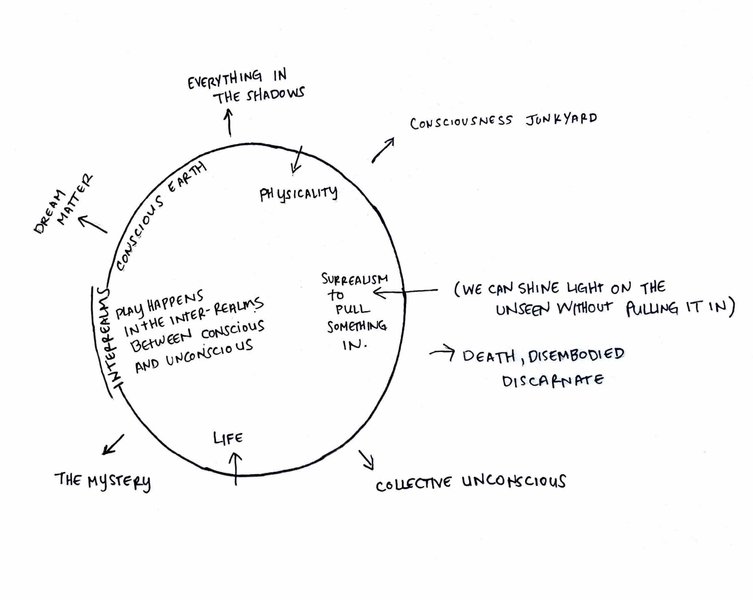 EVERYTHING IN
THE SHADOWS
CONSCIOUSNESS JUNKYARD
DREAM
MATTER
CONSCIOUS EARTH
PHYSICALITY
INTERREALMS
PLAY HAPPENS
IN THE INTER-REALMS
BETWEEN CONSCIOUS
AND UNCONSCIOUS
SURREALISM
TO
PULL
SOMETHING
IN.
(WE CAN SHINE LIGHT ON THE
UNSEEN WITHOUT PULLING IT IN)
DEATH, DISEMBODIED
DISCARNATE
LIFE
THE MYSTERY
COLLECTIVE UNCONSCIOUS